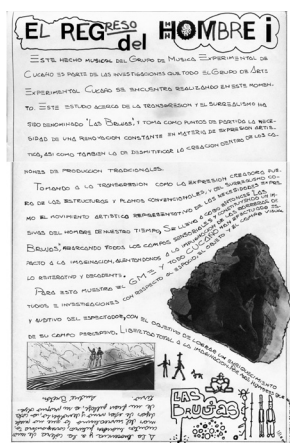 EL REGRESO del HOMBRE i
ESTE HECHO MUSICAL DEL GRUPO DE MUSICA EXPERIMENTAL DE
CUCAÑO ES PARTE DE LAS INVESTIGACIONES QUE TODO EL GRUPO DE ARTE
EXPERIMENTAL CUCAÑO SE ENCUENTRA REALIZANDO EN ESTE MOMEN-
TO. ESTE ESTUDIO ACERCA DE LA TRANSGRESION Y EL SURREALISMO HA
SIDO DENOMINADO "LAS BRUJAS", Y TOMA COMO PUNTOS DE PARTIDA LA NECE-
SIDAD DE UNA RENOVACION CONSTANTE EN MATERIA DE EXPRESION ARTIS-
TICA, ASI COMO TAMBIEN LA DE DESMITIFICAR LA CREACION DENTRO DE LOS CA-
NONES DE PRODUCCION TRADICIONALES.
TOMANDO A LA TRANSGRESION COMO LA EXPRESION CREADORA FUE-
RA DE LAS ESTRUCTURAS Y PLANOS CONVENCIONALES, Y DEL SURREALISMO CO-
MO EL MOVIMIENTO ARTISTICO REPRESENTATIVO DE LAS NECESIDADES EXPRE-
SIVAS DEL HOMBRE DE NUESTRO TIEMPO, SE LLEVO A CABO ENTONCES LAS
BRUJAS, ABARCANDO TODOS LOS CAMPOS SENSORIALES Y CONSTITUYENDO UN
PACTO A LA IMAGINACION, ALENTANDONOS A LA IMPLANTACION DE LAS BARRERAS DE
LO REITERATIVO Y DECADENTE.
PARA ESTA MUESTRA EL GME Y TODO CUCAÑO HAN EFECTUADO ES-
TUDIOS E INVESTIGACIONES CON RESPECTO AL ESPACIO, EL OBJETO Y EL CAMPO VISUAL
Y AUDITIVO DEL ESPECTADOR, CON EL OBJETIVO DE LOGRAR UN ENRIQUECIMIENTO
DE SU CAMPO PERCEPTIVO. LIBERTAD TOTAL A LA IMAGINACION
LAS
BRUJAS
André Breton